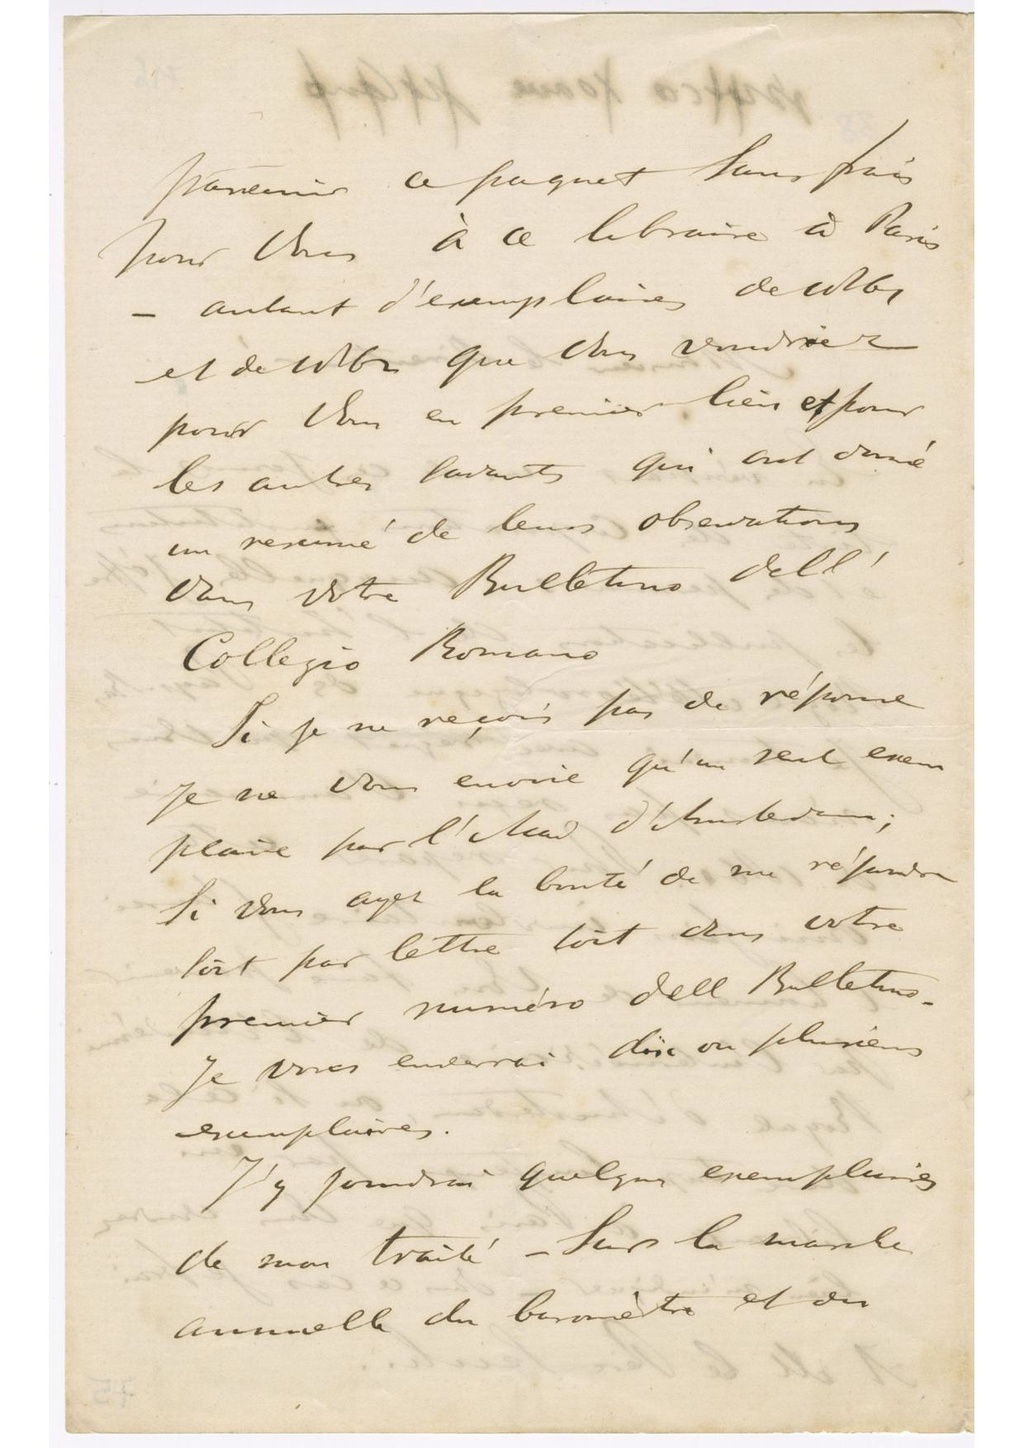 parvenir ce paquet sans frais
pour vous à ce libraire à Paris
– autant d'exemplaires de
et de que vous voudriez
pour vous en premier lieu et pour
les autres savants qui ont donné
un resumé de leurs observations
dans votre Bulletino dell'
Collegio Romano
Si je ne reçois pas de réponse
je ne vous envoie qu'un seul exem
plaire par l'Acad d'Amsterdam;
Si vous ayez la bonté de me répondre
soit par lettre soit dans votre
premier numéro dell Bulletino –
je vous enverrai dix ou plusieurs
exemplaires.
J'y joindrai quelques exemplaires
de mon traité – Sur la marche
annuelle du baromètre et du
75